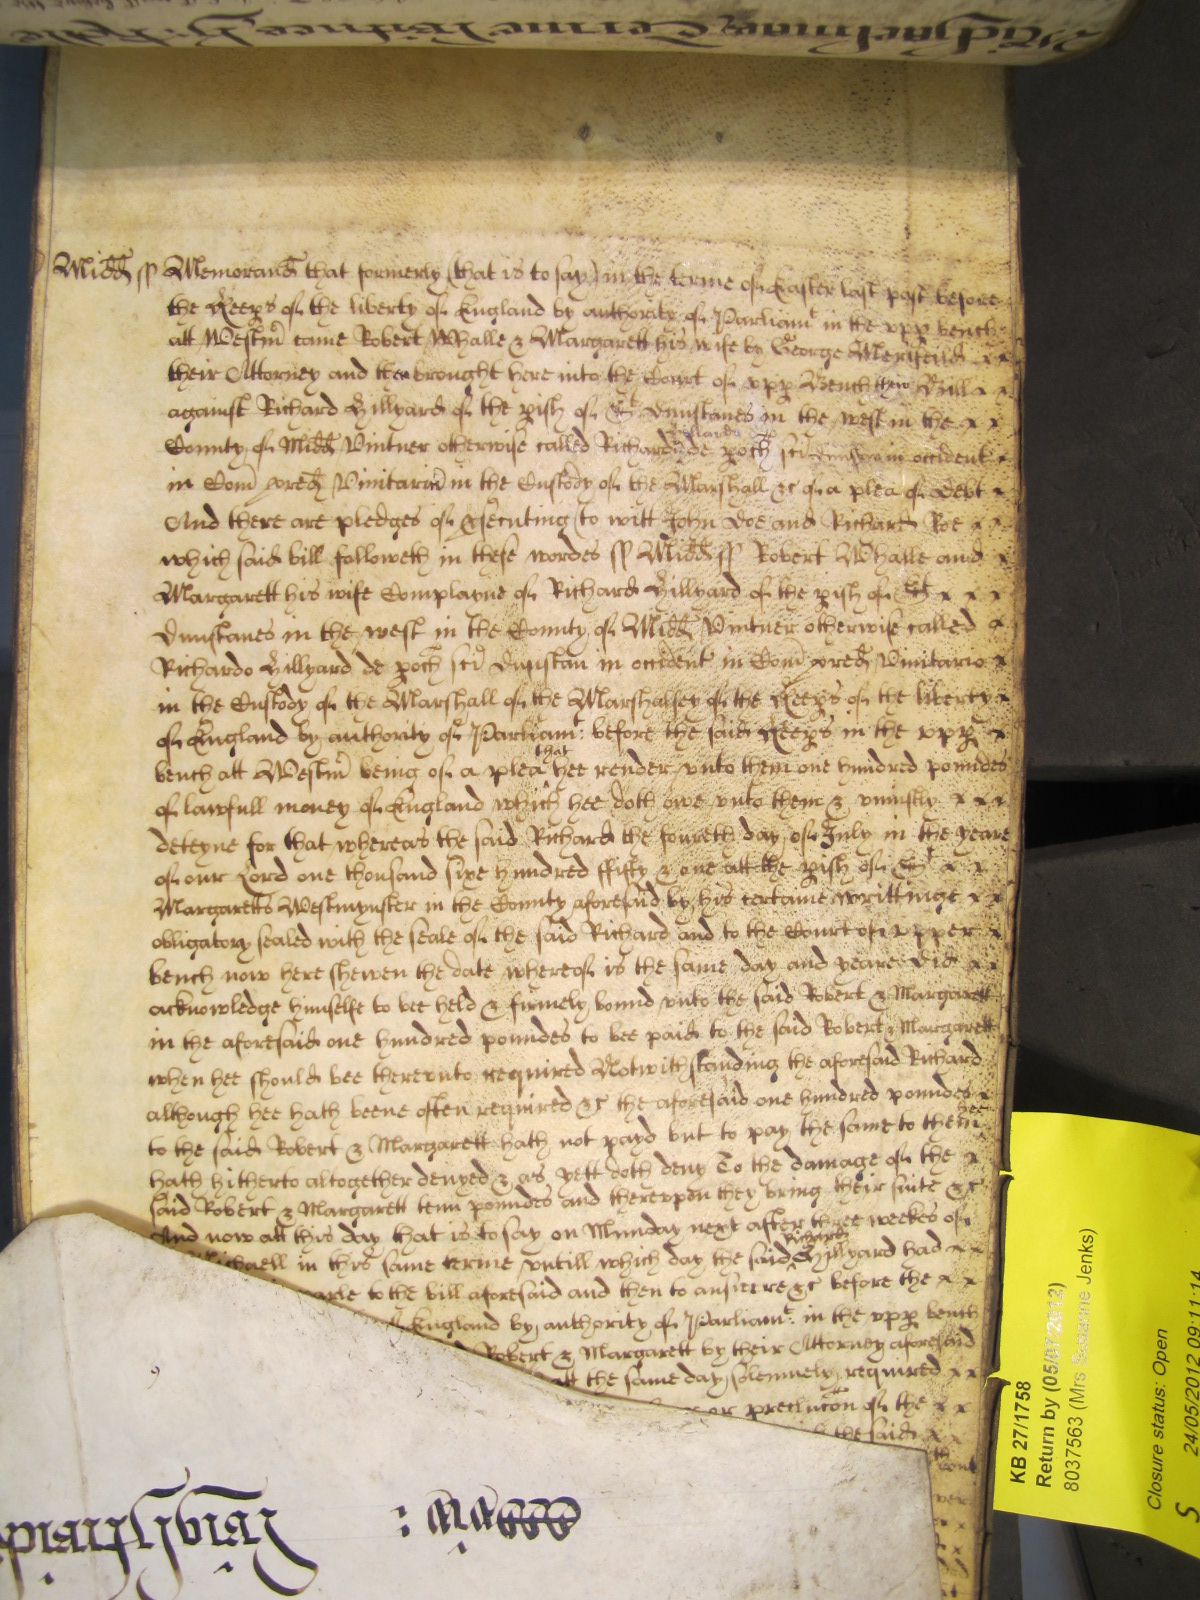 Midd ss Memorand that formerly (that is to say) in the terme of Easter last past before
the Keeps of the liberty of England by authority of Parliamt in the upp bench
att Westm came Robert Whalle & Margarett his wife by George Merifeild x x
their Attorney and then brought here into the Court of upp Bench their Bill x x
against Richard Hillyard of the pish of St Dunstanes in the west in the x x
County of Midd Vintner otherwise called Richard de poch sci in occident x
in Com pred Vinitario in the Custody of the Marshall &c of a plea of debt x
And there are pledges of psecuting to witt John Doe and Richard Roe x x
which said bill followeth in these wordes ss Midd ss Robert Whalle and x
Margarett his wife Complayne of Richard Hillyard of the pish of St x x x
Dunstanes in the west in the County of Midd Vintner otherwise called x
Richardo Hillyard de poch sci Dunstan in occident in Com pred Vinitario x
in the Custody of the Marshall of the Marshalsey of the Keeps of the liberty x
of England by authority of Parliamt: before the said Keeps in the upp x
bench att Westm being of a plea that hee render unto them one hundred poundes
of lawfull money of England which hee doth owe unto them & uniustly x x x
deteyne for that whereas the said Richard the fourth day of July in the yeare
of our Lord one thousand sixe hundred ffifty & one att the pish of St x x
Margaretts Westmynster in the County aforesaid by his certaine writtinge x x
obligatory sealed with the seale of the said Richard and to the Court of upper x
bench now here shewen the date whereof is the same day and yeare did x x
acknowledge himselfe to bee held & firmely bound unto the said Robert & Margarett
in the aforesaid one hundred poundes to bee paid to the said Robert & Margarett
when hee should bee thereunto required Notwithstanding the aforesaid Richard
although hee hath beene often required &c the aforesaid one hundred poundes x
to the said Robert & Margarett hath not payd but to pay the same to them hee
hath hitherto altogether denyed & as yett doth deny To the damage of the x
said Robert & Margarett tenn poundes and thereupon they bring their suite &c
And now att this day that is to say on Munday next after three weekes of
Michaell in this same terme untill which day the said Richard Hillyard had x x
parle to the bill aforesaid and then to answere &c before the x x
of England by authority of Parliamt: in the upp bench
Robert & Margarett by their Attorney aforesaid
att the same day solemnely required x x
of the x x
the said x
KB 27/1758
Return by (05/07/2012)
8037563 (Mrs Susanne Jenks)
Closure status: Open
24/05/2012 09:11:14
S